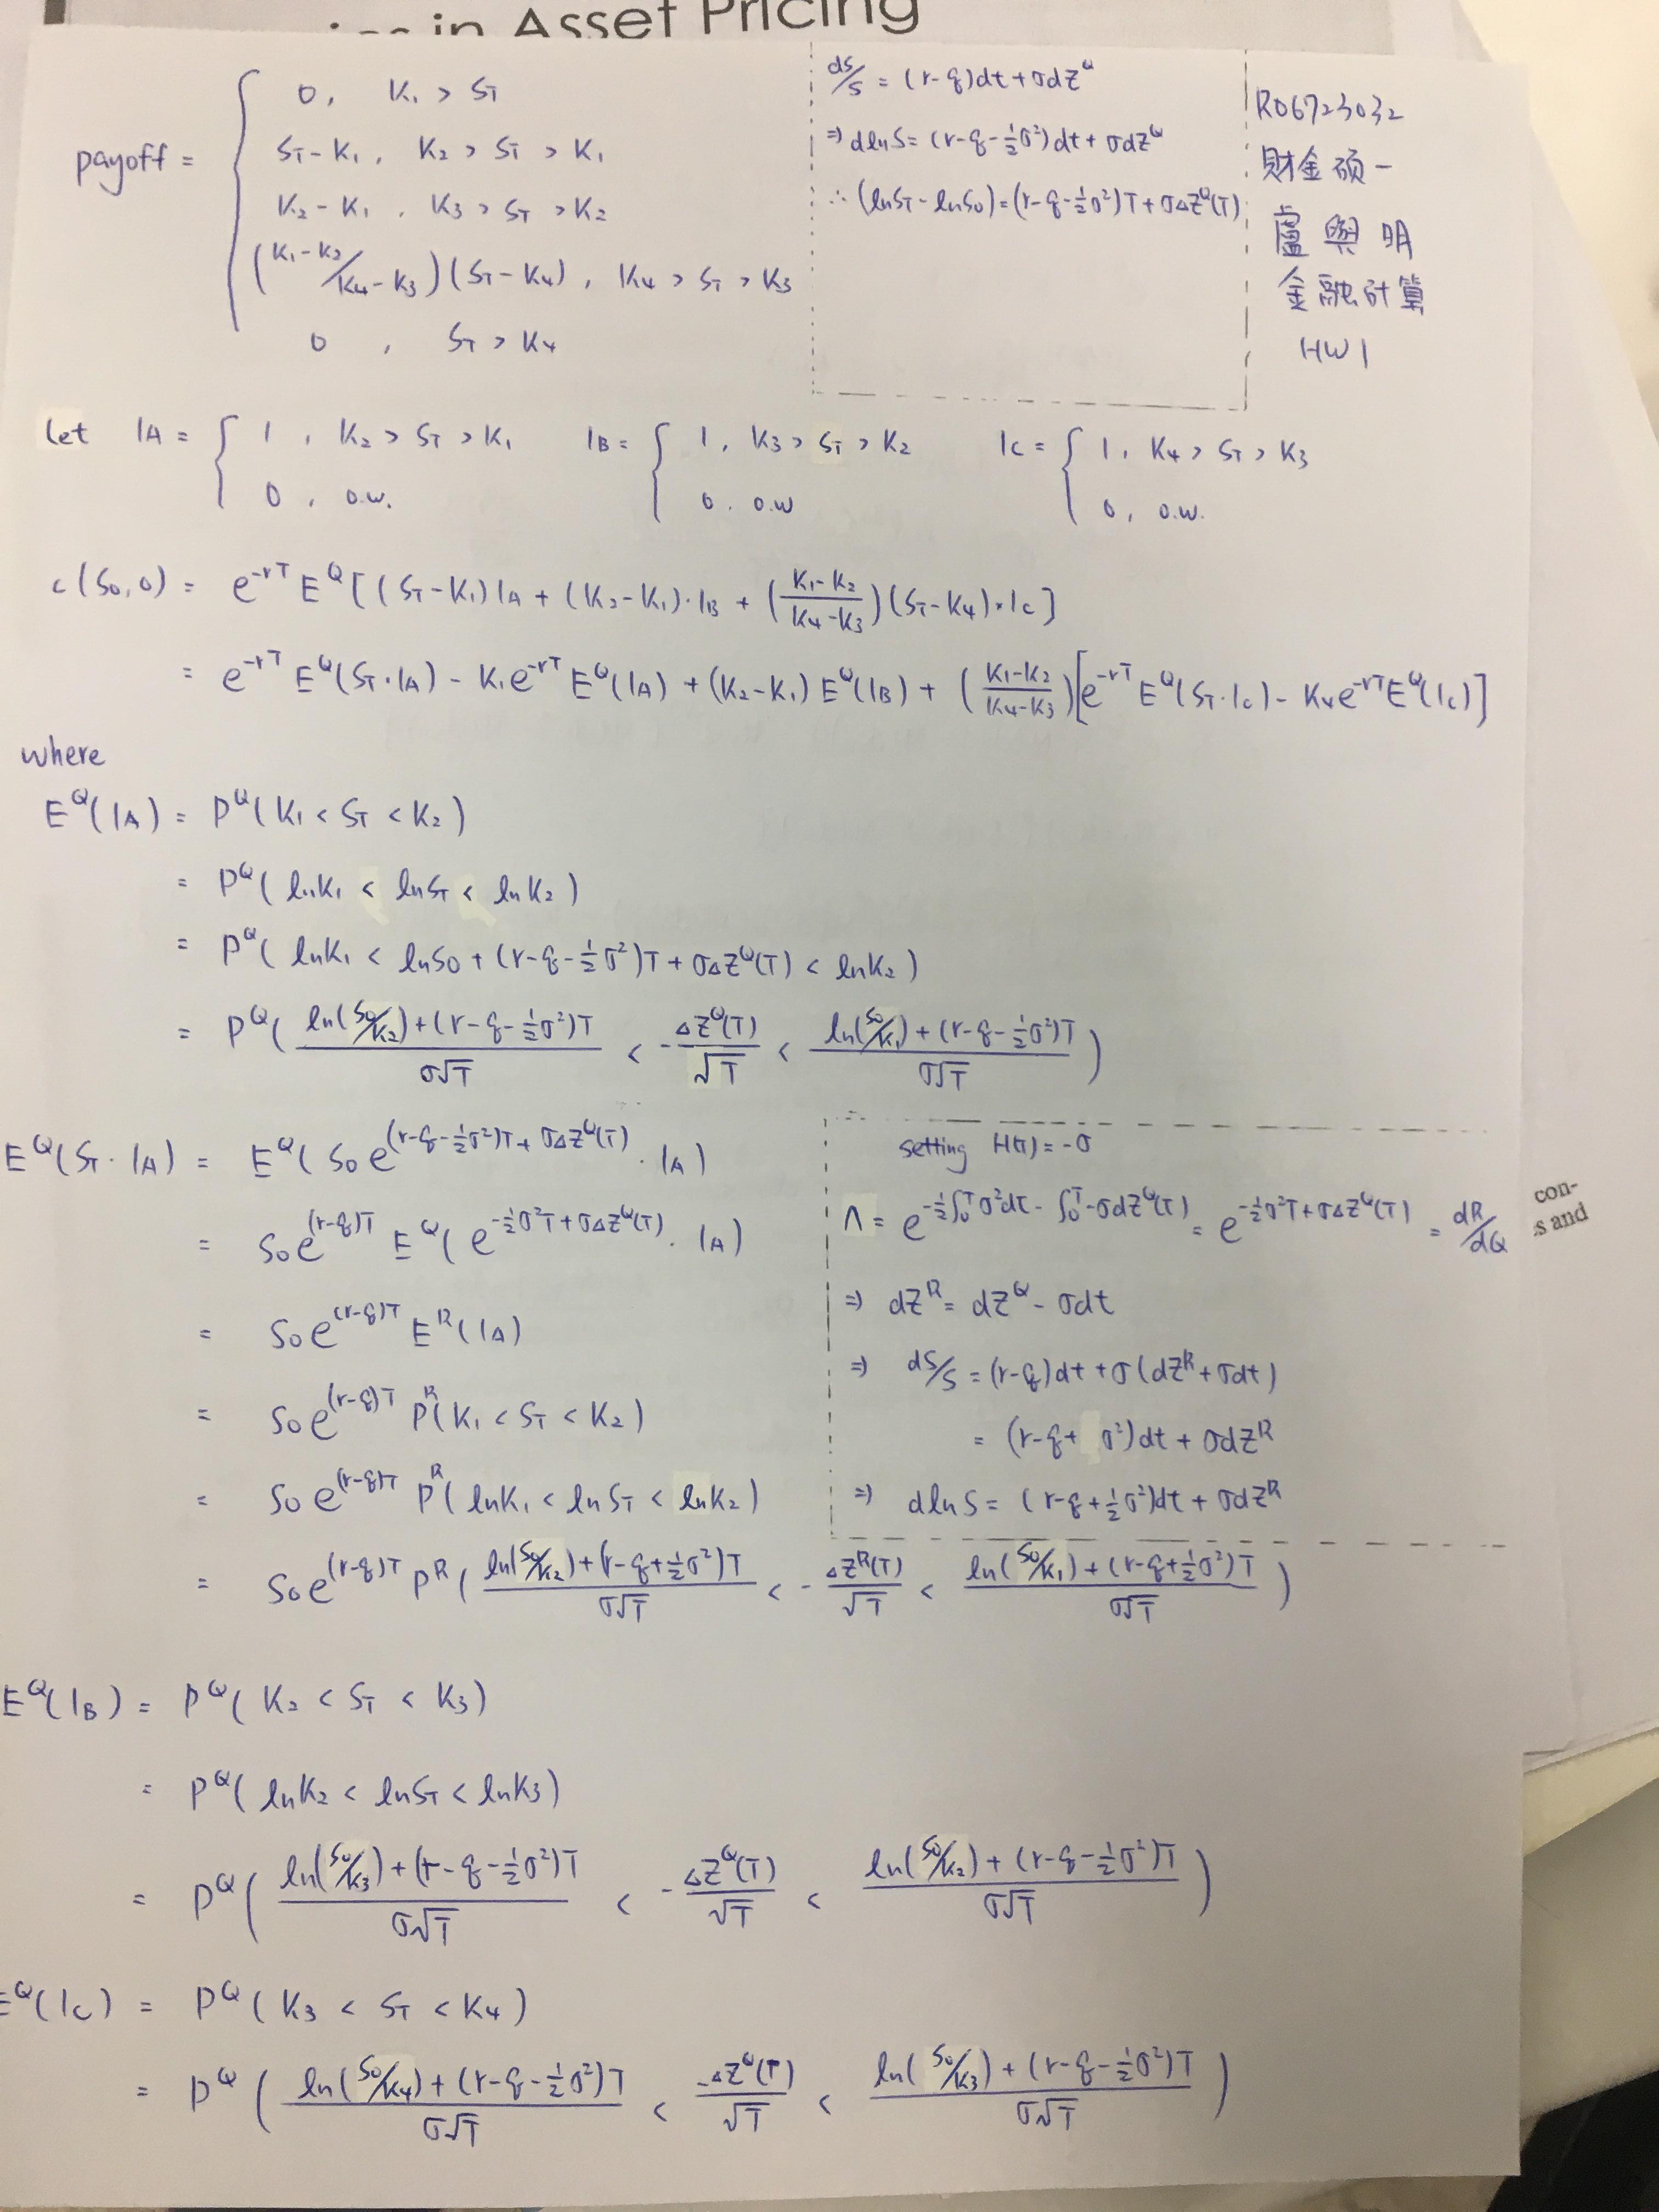 in Asset Pricing
payoff = { 0, K₁ > S_T
S_T - K₁, K₂ > S_T > K₁
K₂ - K₁, K₃ > S_T > K₂
(K₁-K₂/K₄-K₃)(S_T - K₄), K₄ > S_T > K₃
0, S_T > K₄
dS/S = (r-q)dt + σdZ^Q
⇒ dlnS = (r-q-½σ²)dt + σdZ^Q
∴ (lnS_T - lnS₀) = (r-q-½σ²)T + σΔZ^Q(T)
R06723032
財金碩一
盧 輿 明
金融計算
HW1
let 1A = { 1, K₂ > S_T > K₁ 1B = { 1, K₃ > S_T > K₂ 1C = { 1, K₄ > S_T > K₃
0, o.w. 0, o.w 0, o.w.
c(S₀,0) = e^{-rT} E^Q[(S_T-K₁)1A + (K₂-K₁)·1B + (K₁-K₂/K₄-K₃)(S_T-K₄)·1C]
= e^{-rT} E^Q(S_T·1A) - K₁e^{-rT} E^Q(1A) + (K₂-K₁) E^Q(1B) + (K₁-K₂/K₄-K₃)[e^{-rT} E^Q(S_T·1C) - K₄e^{-rT} E^Q(1C)]
where
E^Q(1A) = P^Q(K₁ < S_T < K₂)
= P^Q(lnK₁ < lnS_T < lnK₂)
= P^Q(lnK₁ < lnS₀ + (r-q-½σ²)T + σΔZ^Q(T) < lnK₂)
= P^Q( ln(S₀/K₂)+(r-q-½σ²)T / σ√T < -ΔZ^Q(T)/√T < ln(S₀/K₁)+(r-q-½σ²)T / σ√T )
E^Q(S_T·1A) = E^Q(S₀e^{(r-q-½σ²)T+σΔZ^Q(T)}·1A)
= S₀e^{(r-q)T} E^Q(e^{-½σ²T+σΔZ^Q(T)}·1A)
= S₀e^{(r-q)T} E^R(1A)
= S₀e^{(r-q)T} P^R(K₁ < S_T < K₂)
= S₀e^{(r-q)T} P^R(lnK₁ < lnS_T < lnK₂)
= S₀e^{(r-q)T} P^R( ln(S₀/K₂)+(r-q+½σ²)T / σ√T < -ΔZ^R(T)/√T < ln(S₀/K₁)+(r-q+½σ²)T / σ√T )
setting H(T) = -σ
Λ = e^{-½∫₀^T σ²dt - ∫₀^T -σdZ^Q(T)} = e^{-½σ²T+σΔZ^Q(T)} = dR/dQ
⇒ dZ^R = dZ^Q - σdt
⇒ dS/S = (r-q)dt + σ(dZ^R + σdt)
= (r-q+σ²)dt + σdZ^R
⇒ dlnS = (r-q+½σ²)dt + σdZ^R
con-
s and
E^Q(1B) = P^Q(K₂ < S_T < K₃)
= P^Q(lnK₂ < lnS_T < lnK₃)
= P^Q( ln(S₀/K₃)+(r-q-½σ²)T / σ√T < -ΔZ^Q(T)/√T < ln(S₀/K₂)+(r-q-½σ²)T / σ√T )
E^Q(1C) = P^Q(K₃ < S_T < K₄)
= P^Q( ln(S₀/K₄)+(r-q-½σ²)T / σ√T < -ΔZ^Q(T)/√T < ln(S₀/K₃)+(r-q-½σ²)T / σ√T )